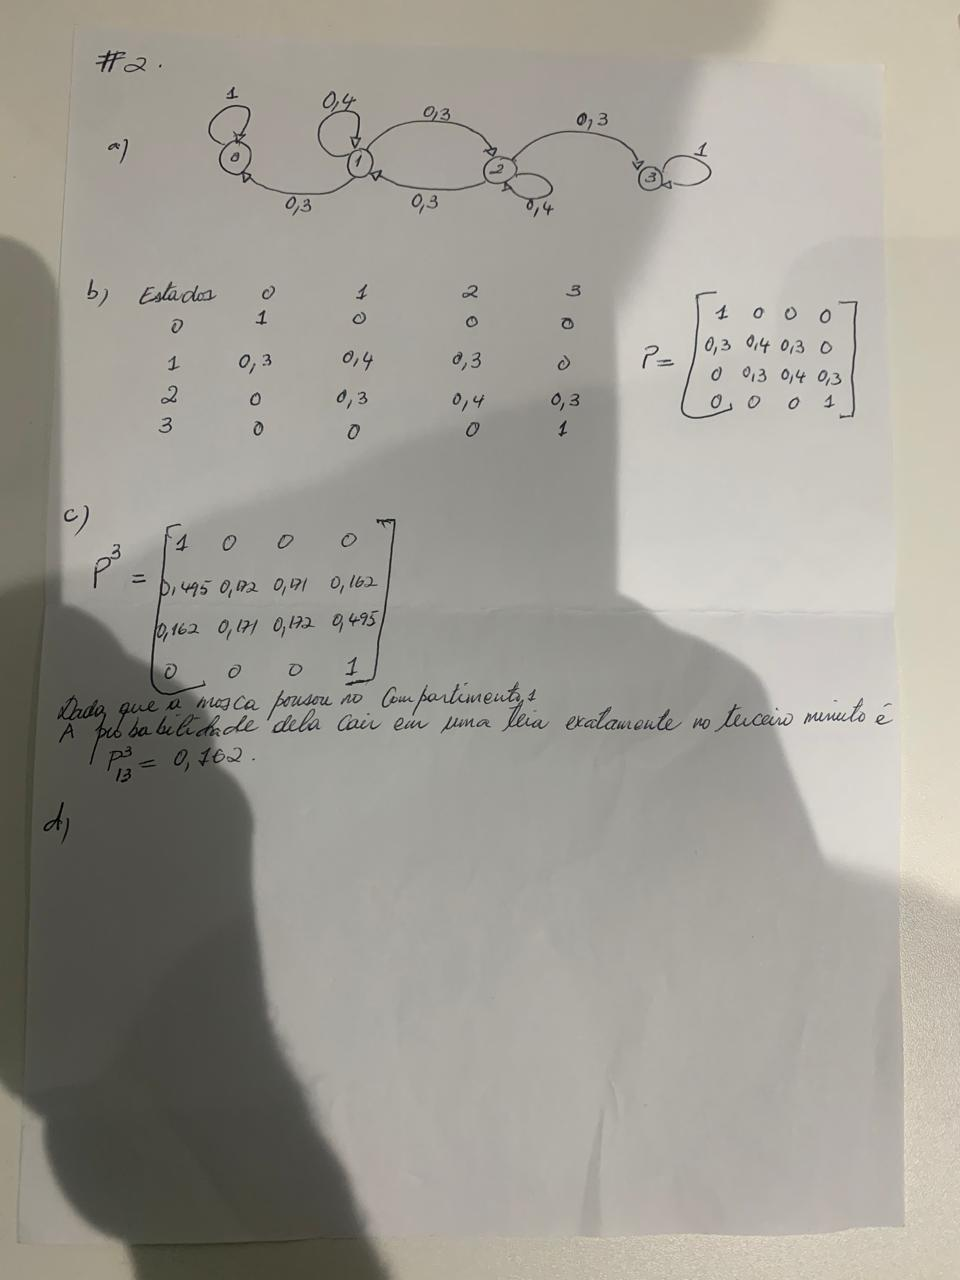 #2.
a)
1 0,4 0,3 0,3 1
0 1 2 3
0,3 0,3 0,4
b) Estados 0 1 2 3
0 1 0 0 0
1 0,3 0,4 0,3 0
2 0 0,3 0,4 0,3
3 0 0 0 1
P= 1 0 0 0
0,3 0,4 0,3 0
0 0,3 0,4 0,3
0 0 0 1
c)
P³ = 1 0 0 0
0,495 0,172 0,171 0,162
0,162 0,171 0,172 0,495
0 0 0 1
Dado que a mosca pousou no Compartimento 1
A probabilidade dela cair em uma teia exatamente no terceiro minuto é
P³₁₃ = 0,162.
d)